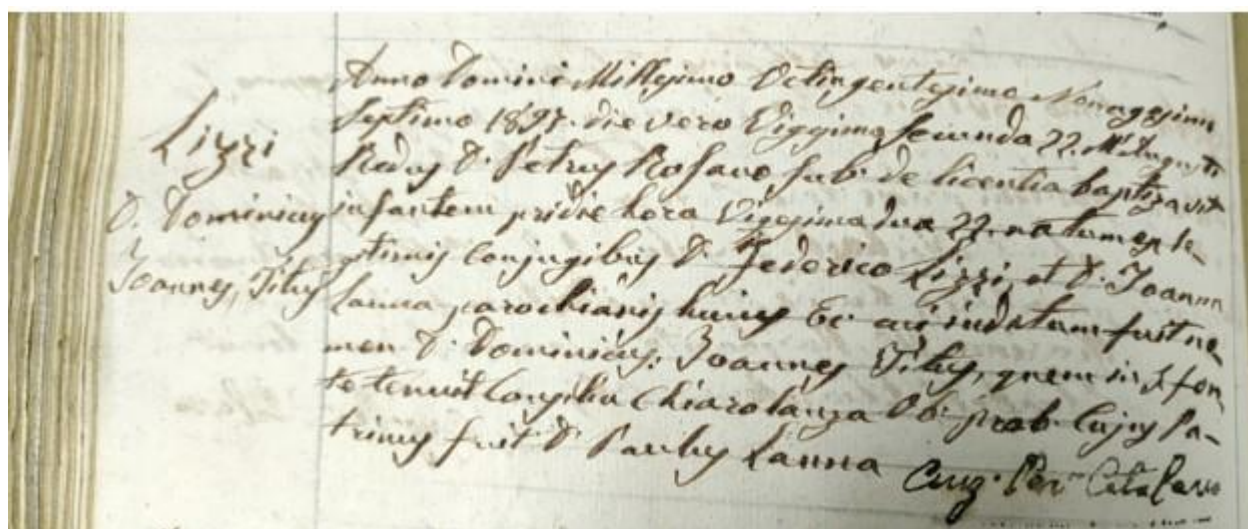 Lizzi
D. Dominicus
Joannes, Titus
Anno Domini Millesimo Octingentesimo Nonagesimo
Septimo 1897. die vero Vigesima secunda 22. M. Augusti
Redus D. Petrus Rosano sub. de licentia baptizavit
infantem pridie hora Vigesima dua 22. natum ex le-
gitimis Conjugibus D. Federico Lizzi, et D. Joanna
Lanna parochianis hujus Ec. cui inditum fuit no-
men D. Dominicus. Joannes Titus, quem in S. fon-
te tenuit Consilia Chiarolanza Ob. prob. Cujus Pa-
trinus fuit D. Paulus Lanna